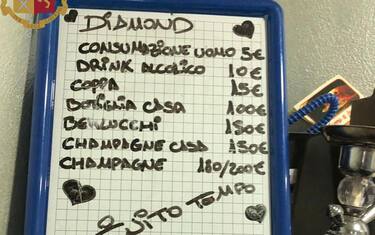 DIAMOND
CONSUMAZIONE UOMO 5€
DRINK ALCOLICO 10€
COPPA 15€
BOTTIGLIA CASA 100€
BELLUCCHI 130€
CHAMPAGNE CASA 150€
CHAMPAGNE 180/200€
TEMPO